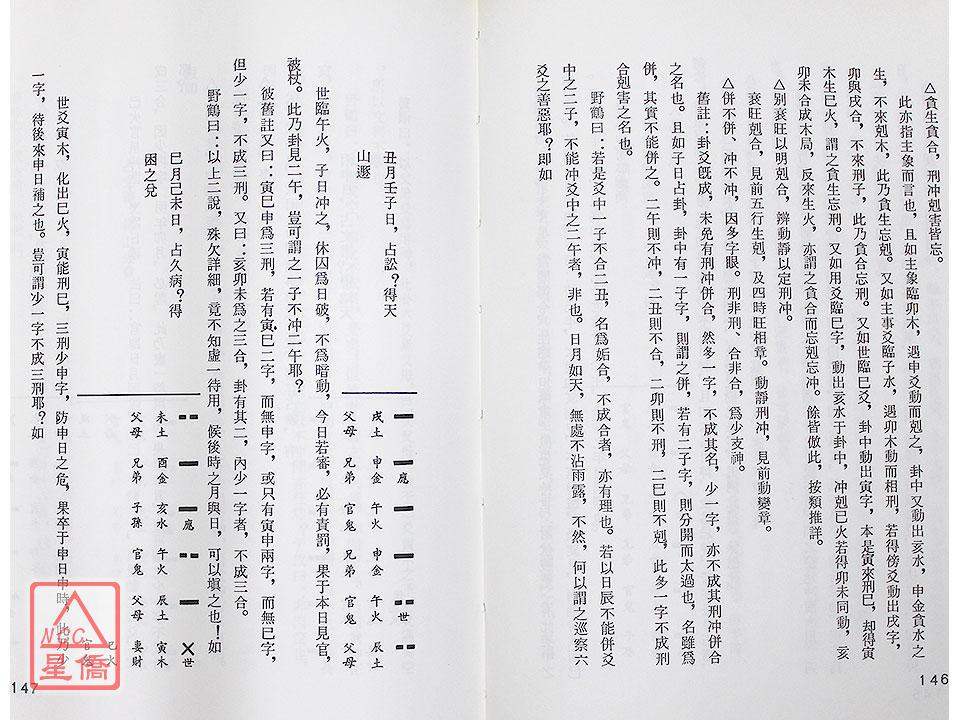 △貪生貪合，刑冲剋害皆忘。
此亦指主象而言也，且如主象臨卯木，遇申爻動而剋之，卦中又動出亥水，申金貪水之
生，不來剋木，此乃貪生忘剋。又如主事爻臨子水，遇卯木動而相刑，若得傍爻動出戌字，
卯與戌合，不來刑子，此乃貪合忘刑。又如世臨巳爻，卦中動出寅字，本是寅來刑巳，却得寅
木生巳火，謂之貪生忘刑。又如用爻臨巳字，動出亥水于卦中，冲剋巳火若得卯未同動，亥
卯未合成木局，反來生火，亦謂之貪合而忘剋忘冲。餘皆倣此，按類推詳。
△别衰旺以明剋合，辨動靜以定刑冲。
衰旺剋合，見前五行生剋，及四時旺相章。動靜刑冲，見前動變章。
△併不併、冲不冲，因多字眼。刑非刑、合非合，爲少支神。
舊註：卦爻旣成，未免有刑冲併合，然多一字，不成其名，少一字，亦不成其刑冲併合
之名也。且如子日占卦，卦中有一子字，則謂之併，若有二子字，則分開而太過也，名雖爲
併，其實不能併之。二午則不冲，二丑則不合，二卯則不刑，二巳則不剋，此多一字不成刑
合剋害之名也。
野鶴曰：若是爻中一子不合二丑，名爲姤合，不成合者，亦有理也。若以日辰不能併爻
中之二子，不能冲爻中之二午者，非也。日月如天，無處不沾雨露，不然，何以謂之巡察六
爻之善惡耶？卽如
146
丑月壬子日，占訟？得天
山遯
戌土 申金 午火 申金 午火 辰土
應 世
父母 兄弟 官鬼 兄弟 官鬼 父母
世臨午火，子日冲之，休囚爲日破，不爲暗動，今日若審，必有責罰，果于本日見官，
被杖。此乃卦見二午，豈可謂之一子不冲二午耶？
彼舊註又曰：寅巳申爲三刑，若有寅巳二字，而無申字，或只有寅申兩字，而無巳字，
但少一字，不成三刑。又曰：亥卯未爲之三合，卦有其二，內少一字者，不成三合。
野鶴曰：以上二說，殊欠詳細，竟不知虛一待用，候後時之月與日，可以塡之也！如
巳月己未日，占久病？得
困之兌
應 世
未土 酉金 亥水 午火 辰土 寅木
巳火
父母 兄弟 子孫 官鬼 父母 妻財
官鬼
世爻寅木，化出巳火，寅能刑巳，三刑少申字，防申日之危，果卒于申日申時，此乃少
一字，待後來申日補之也。豈可謂少一字不成三刑耶？如
147
NCC
星僑